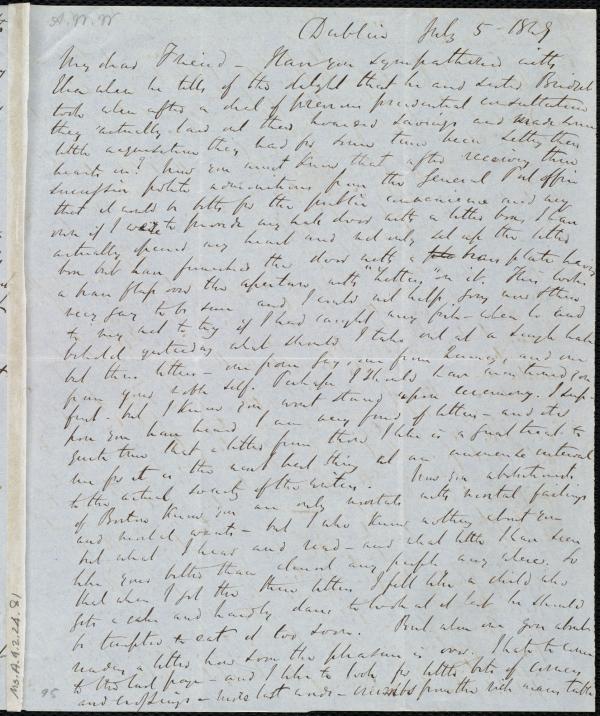 A.W.W
Dublin July 5 - 1849
My dear Friend - Have you sympathized with
Eben when he tells of the delight that he and sister Bridget
took when after a deal of previous prudential consultation
they actually laid out their hoarded savings and made
little acquisitions they had for some time been setting their
hearts on? Now you must know that after receiving three
successive polite admonitions from the General Post office
that it would be better for the public convenience and my
own if I were to provide my hall door with a letter box, I
actually opened my heart and not only set up the letter
box but have furnished the door with a brass plate having
a brass flap over the aperture with "Letters" on it. This looks
very gay to be sure and I could not help, every now & then
to try if I had caught any fish - when lo and
behold yesterday what should I take out at a single haul
but three letters - one from Gay, one from and one
from your noble self. Perhaps I should have mentioned you
first. But I know you wont stand upon ceremony. I
how you have heard I am very fond of letters - and it's
quite true that a letter from those I like is a great treat to
me for it is the next best thing at an immense interval
to the actual society of the writer. Now you abolitionists
of Boston know you are only mortals with mortal failings
and mortal wants - but I who know nothing about you
but what I hear and read - and what little I have seen
like you better than almost any people any where. So
that when I got these three letters I felt like a child who
gets a cake and hardly dares to look at it lest he should
be tempted to eat it too soon. But when one you
reading a letter how soon the pleasure is over. I hate to come
to the last page - and I like to look for little bits of corners
and crossings - nice last ends - crumbs from the rich mans table
Ms. A.1.2.v.19.81
95